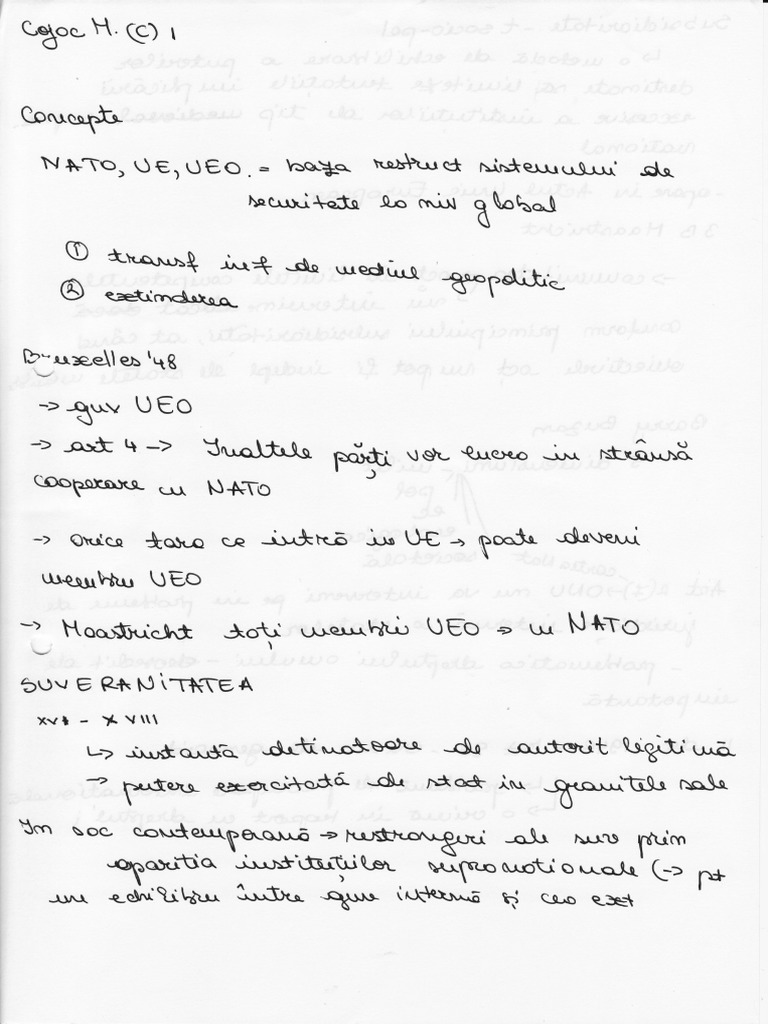 Cojoc M. (C) 1
Concepte
NATO, UE, UEO. = baza restruct sistemului de
securitate la niv global
① transf inf de mediul geopolitic
② extinderea
Bruxelles '48
→ guv UEO
→ art 4 → Inaltele părți vor lucra in strânsă
cooperare cu NATO
→ orice tara ce intră in UE → poate deveni
membru UEO
→ Maastricht toți membrii UEO → in NATO
SUVERANITATEA
XVI - XVIII
↳ instantă detinatoare de autorit legitimă
→ putere exercitată de stat in granitele sale
In soc contemporană → restrangeri ale suv prin
aparitia instituțiilor supranationale (→ pt
un echilibru între guv internă și cea ext